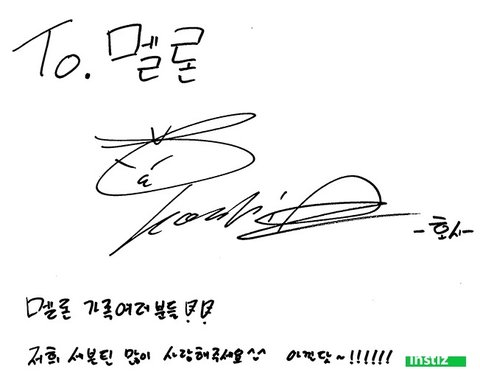 To. 멜론
-호시-
멜론 가족여러분들
저희 세븐틴 많이 사랑해주세요^^ 아낀닷~!!!!!!
instiz